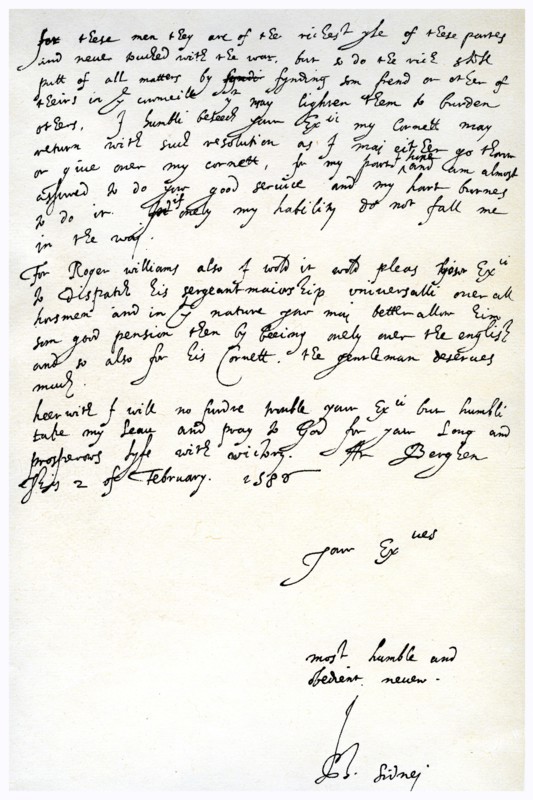 for these men they are of the richest yle of these partes
and never touched with the war, but so do the rich still
putt of all matters by fynding som frend or other of
theirs in yͤ cownceill yͭ way lighten them to burden
others, I humbli beseech your Exͥͥ my Cornett may
return with such resolution as I mai either go thorow
or give over my cornett, for my part I have and am almost
assured to do your good service and my hart burnes
to do it if onely my hability do not fall me
in the way.
For Roger williams also I wold it wold pleas your Exͥͥ
to dispatch his sergeantmaiorship universalli over all
horsmen and in yͭ nature yow mai better allow him
som good pension then by beeing onely over the english
and so also for his Cornett. the gentleman deserves
much.
heerwith I will no furdre trouble your Exͥͥ but humbli
take my leave and pray to God for your long and
prosperous lyfe with victory. At Berghen
this 2 of February. 1586
Your Exͧͤˢ
most humble and
obedient nevew.
Ph. Sidnei